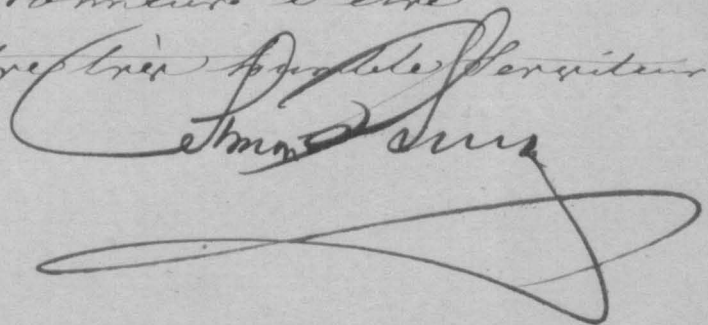 honneur d'être
tre très humble Serviteur